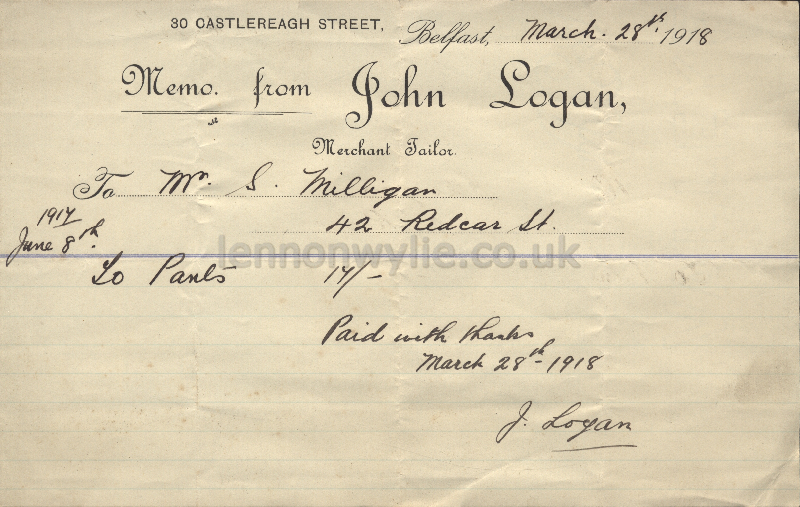 30 CASTLEREAGH STREET,
Belfast, March. 28th. 1918
Memo. from John Logan,
Merchant Tailor.
To Mr. S. Milligan
42 Redcar St.
1917
June 8th.
lennonwylie.co.uk
To Pants 17/-
Paid with thanks
March 28th - 1918
J. Logan